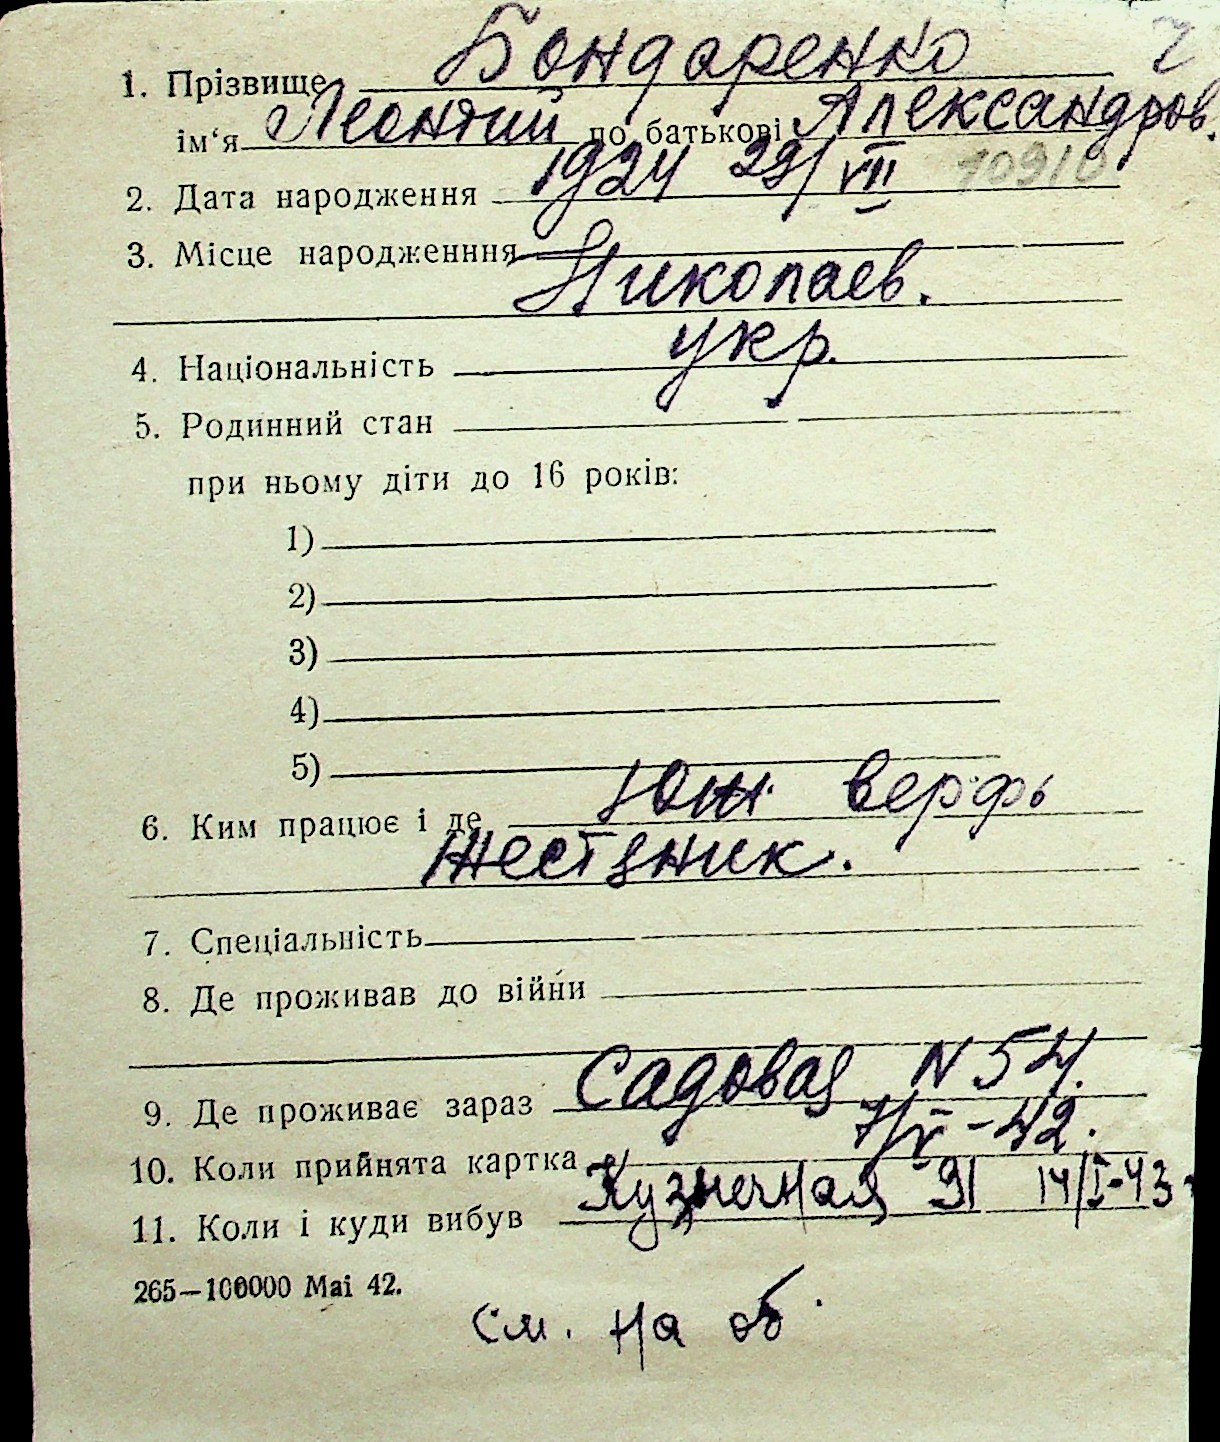 1. Прізвище Бондаренко
ім‘я Леонтий по батькові Александров.
2. Дата народження 1924 29/VII 10910
3. Місце народженння
Николаев.
4. Національність укр.
5. Родинний стан
при ньому діти до 16 років:
1)
2)
3)
4)
5)
6. Ким працює і де Юж верфь
Жестяник.
7. Спеціальність
8. Де проживав до війни
9. Де проживає зараз Садовая N 54.
10. Коли прийнята картка 7/V-42.
11. Коли і куди вибув Кузнечная 91 14/I-43
265—100000 Mai 42.
См. на об.